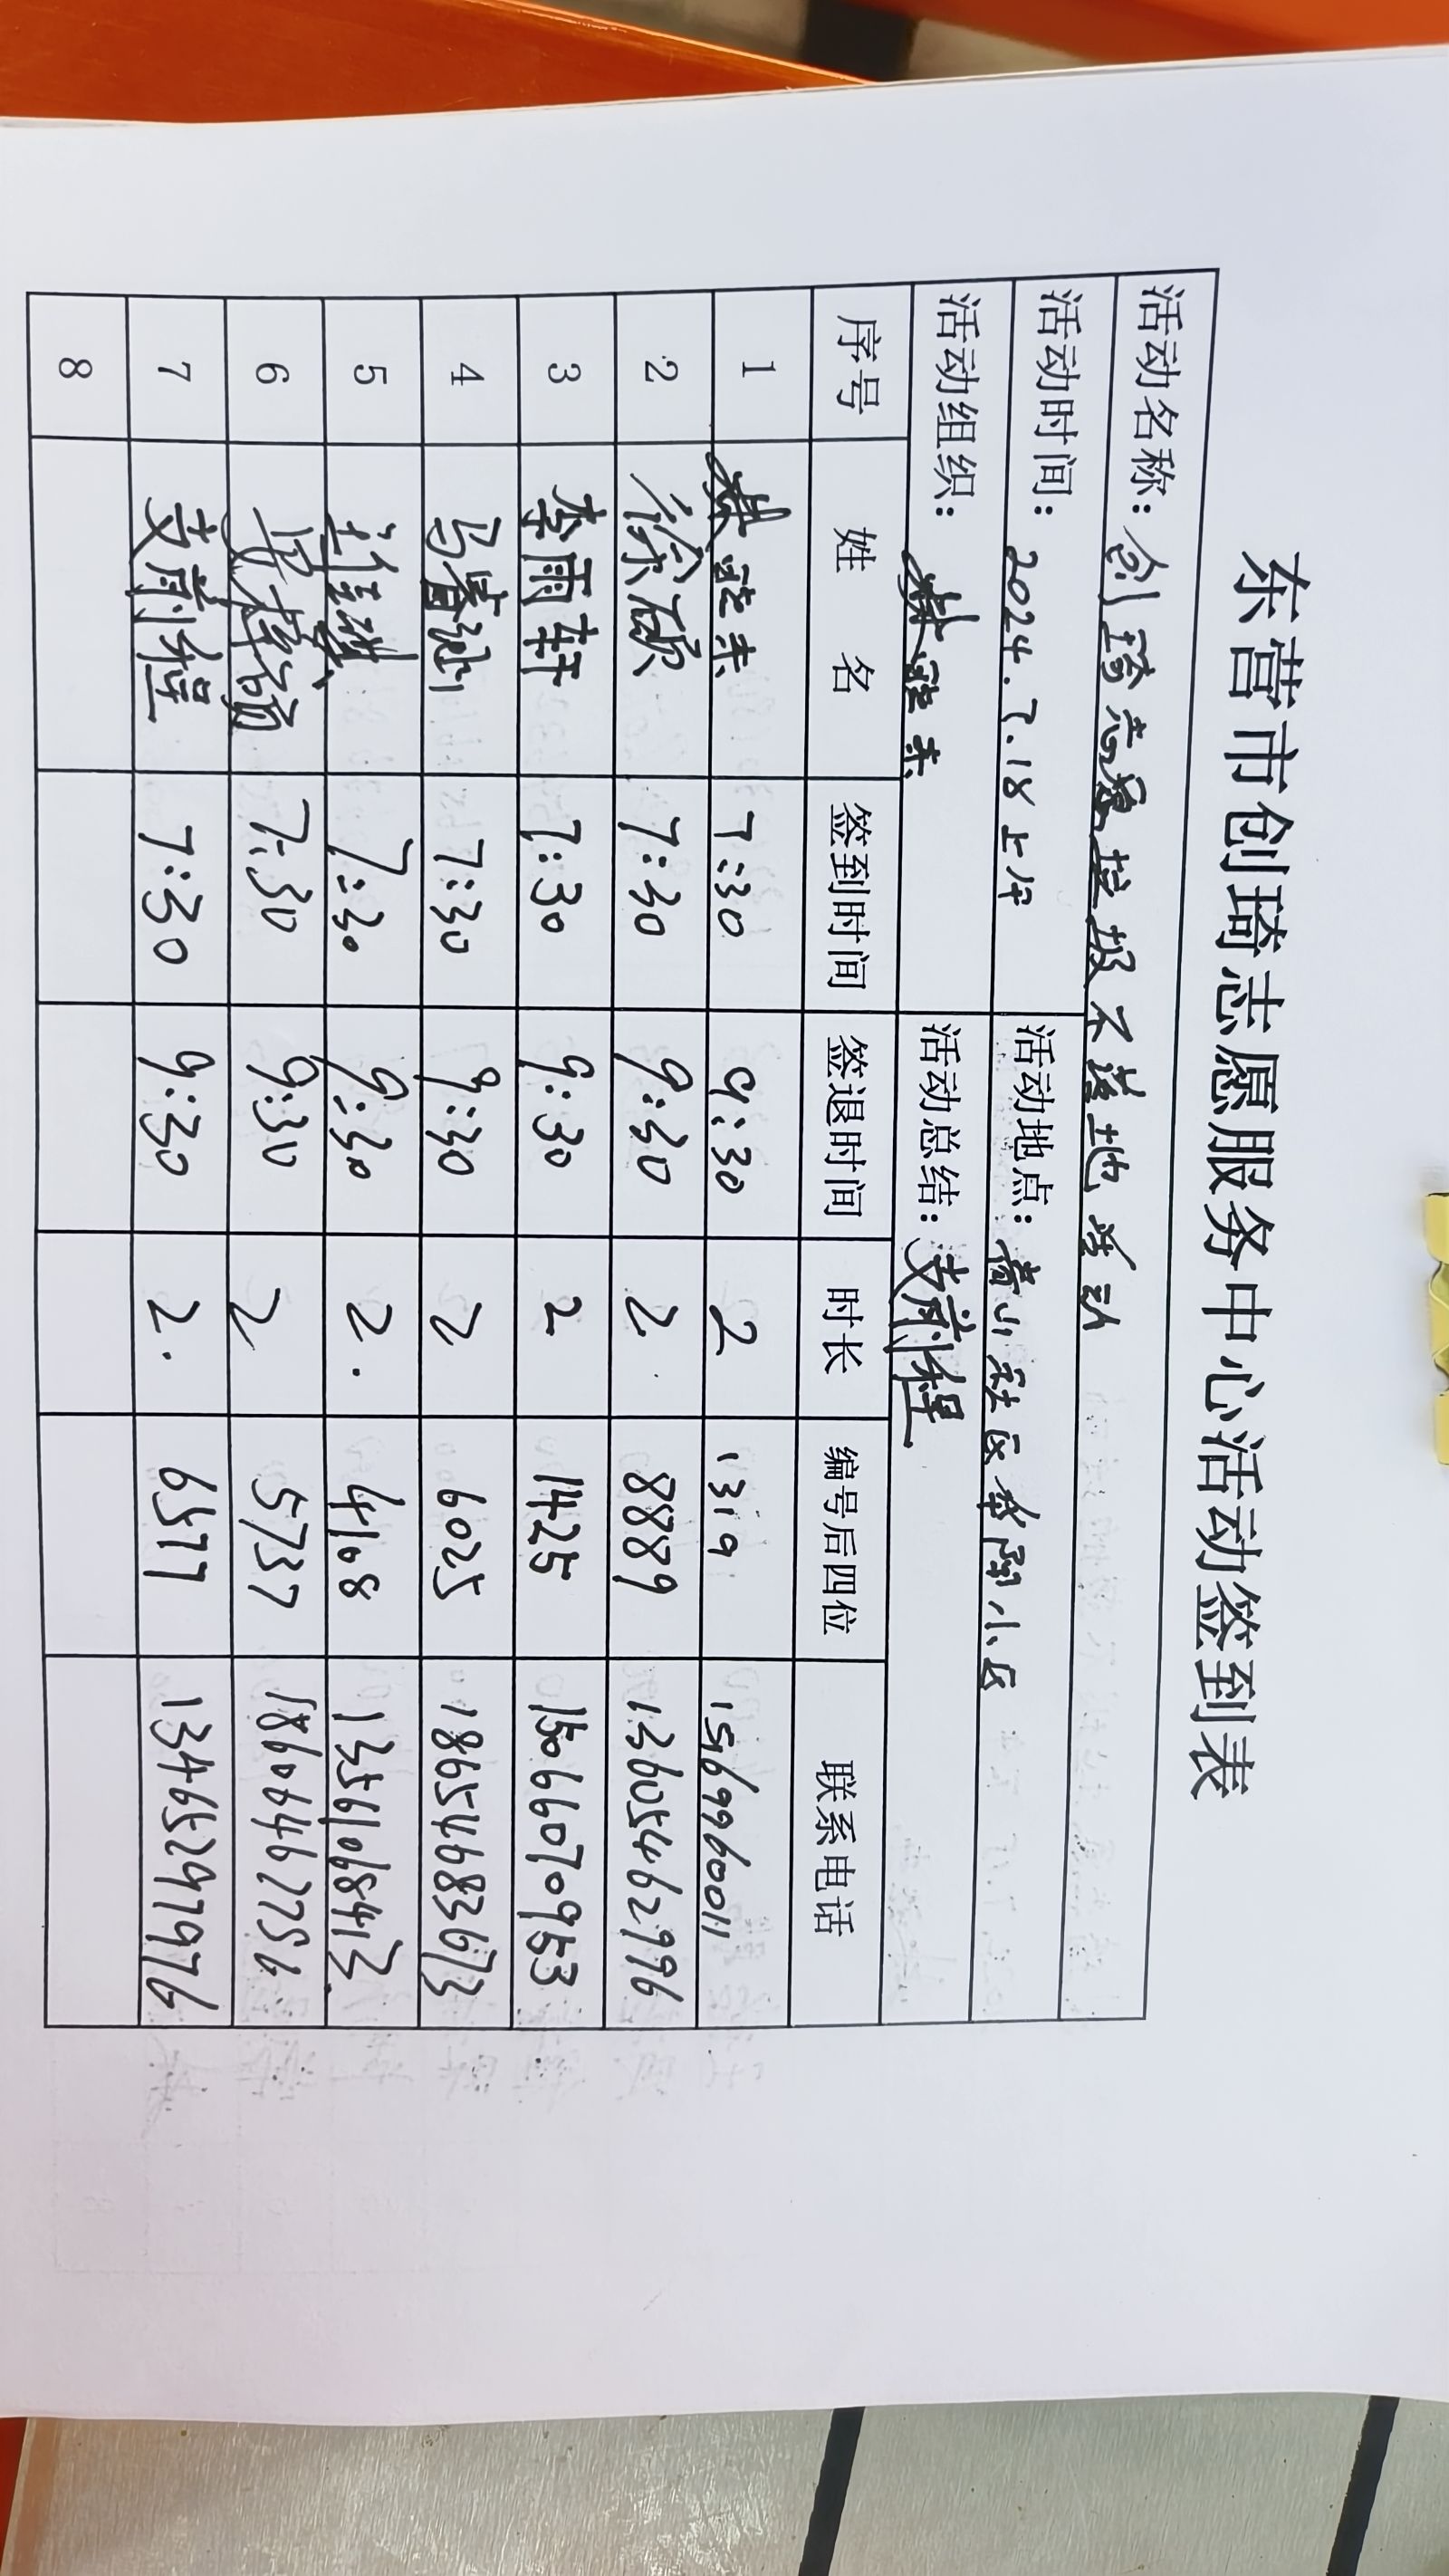 东营市创琦志愿服务中心活动签到表
活动名称：创琦志愿垃圾不落地活动
活动时间：2024.7.18上午 活动地点：黄山社区华阳小区
活动组织： 活动总结：支前程
序号 姓名 签到时间 签退时间 时长 编号后四位 联系电话
1 7:30 9:30 2 1319 15699960011
2 徐硕 7:30 9:30 2. 8889 13605462996
3 李雨轩 7:30 9:30 2 1425 15066070953
4 7:30 9:30 2 6025 18654683673
5 7:30 9:30 2. 4108 13561068413
6 7:30 9:30 2 5737 18606462756
7 支前程 7:30 9:30 2. 6577 13465297976
8